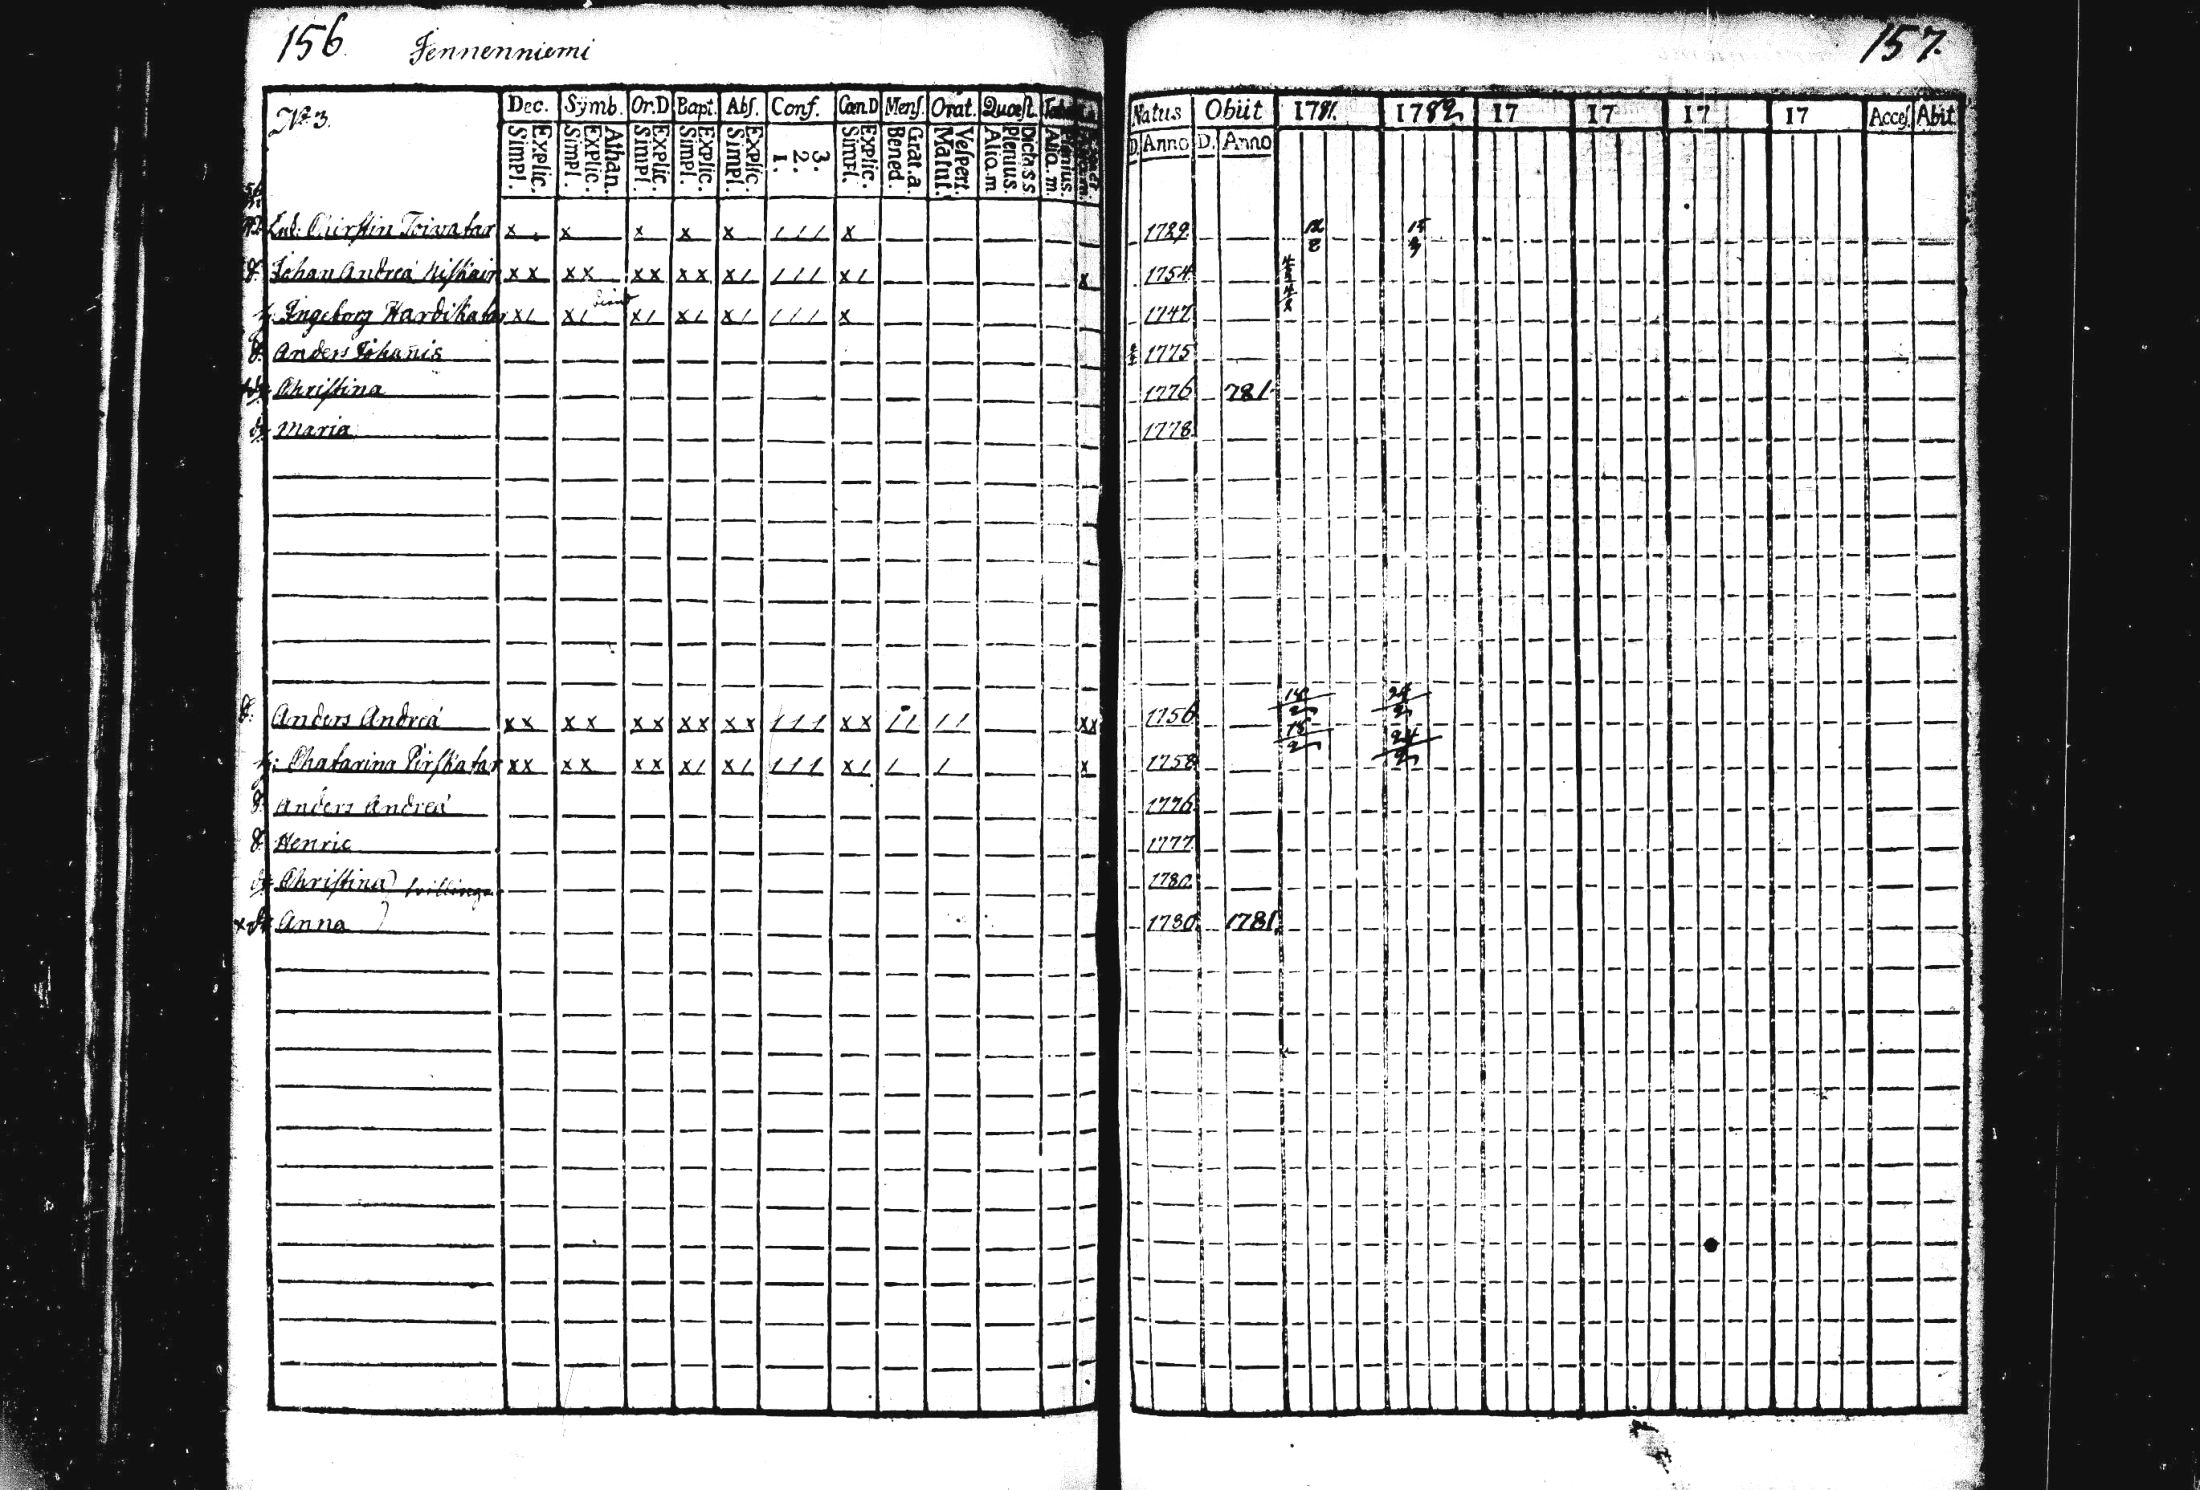 156. Jennenniemi
157.
No 3. Dec. Symb. Or.D Bapt. Abs. Conf. Cœn.D Mens. Orat. Quæst.
Explic. Simpl. Athan. Explic. Simpl. Explic. Simpl. Explic. Simpl. Explic. Simpl. 3. 2. 1. Explic. Simpl. Grat.a. Bened. Vespert. Matut. Dicta.s.s. Plenius. Alio.m. Plenius. Alio.m.
Natus Obiit 1781. 1782 17 17 17 17 Acces. Abit
D. Anno D. Anno
Enk: Chirstin Toivatar x x x x x 1 1 1 x 1729
Johan Andreæ xx xx xx xx x1 111 x1 x 1754
h: Ingeborg Hardikatar x1 x1 x1 x1 x1 111 x 1747
S. Anders Johanis 1775
dr Christina 1776 781.
dr Maria 1778
S. Anders Andreæ xx xx xx xx xx 111 xx 11 11 xx 1756 18/2 24/2
h: Chatarina Pirskatar xx xx xx x1 x1 111 x1 1 1 x 1758 18/2 24/2
S. Anders Andreæ 1776
S. Henric 1777
dr Christina) tvillingar 1780
x dr Anna ) 1780. 1781.